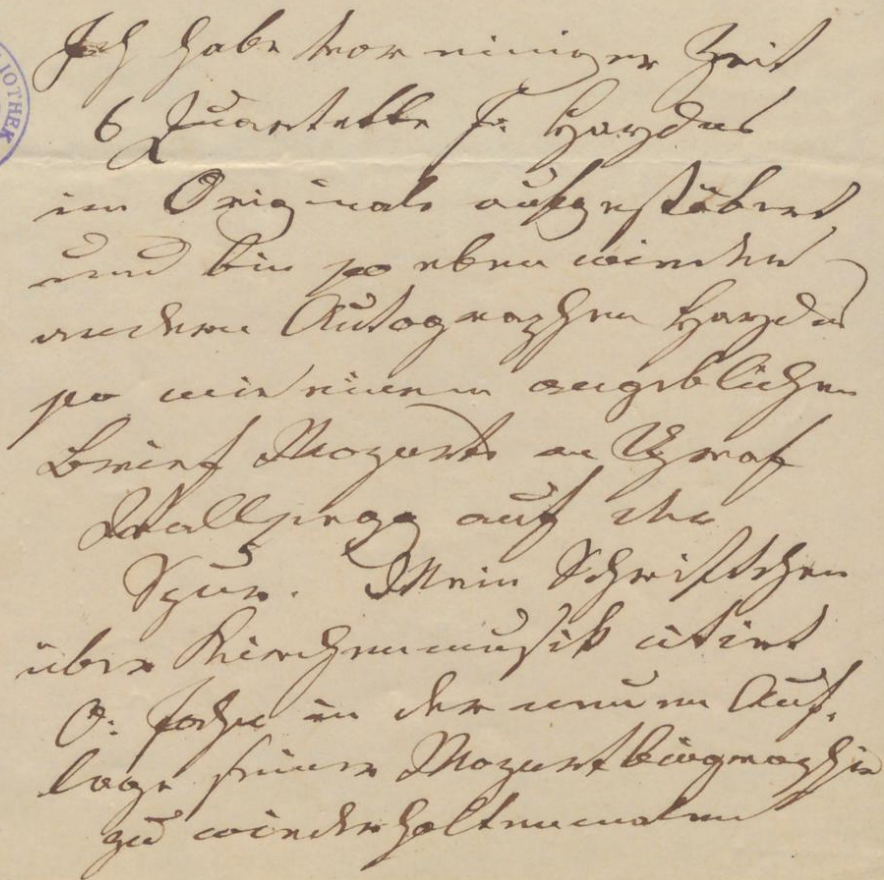 IOTHEK
Ich habe vor einiger Zeit
6 Quartette J. Haydns
im Originale aufgestöbert
und bin so eben wieder
andern Autographen Haydns
so wie einem angeblichen
Brief Mozarts an Graf
Wallsegg auf der
Spur. Mein Schriftchen
über Kirchenmusik citirt
O. Jahn in der neuen Auf,
lage seiner Mozartbiographie
zu wiederholtenmalen